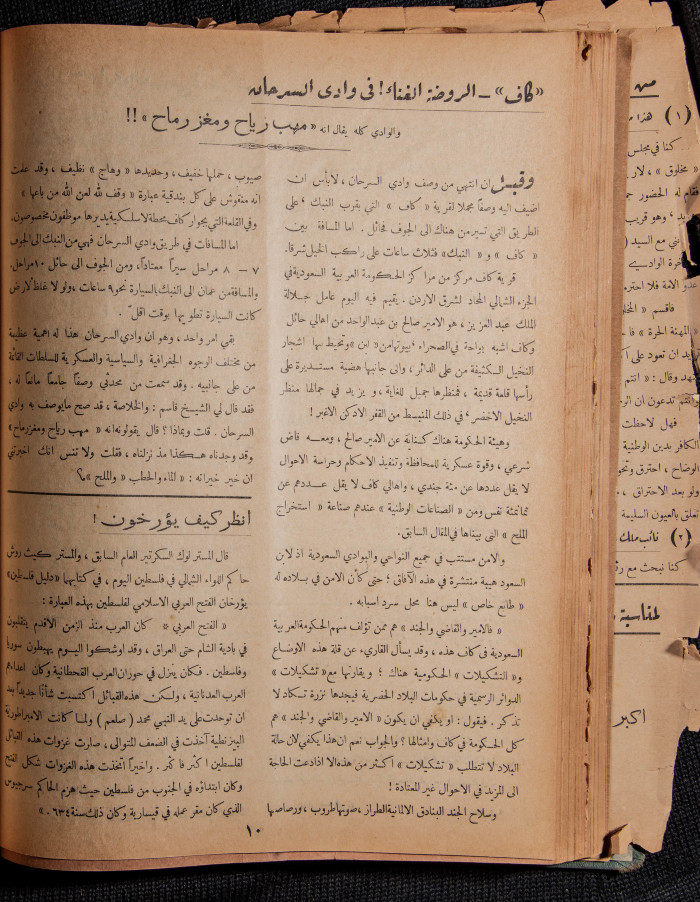 «كاف» – الروضة الغناء ! فى وادى السرحان
والوادي كله يقال انه « مهب رياح ومغز رماح » !!
وقبل ان انتهي من وصف وادي السرحان ، لابأس ان
اضيف اليه وصفاً مجملا لقرية « كاف » التي بقرب النبك ، على
الطريق التي تسير من هناك الى الجوف فحائل . اما المسافة بين
« كاف » و « النبك » فثلاث ساعات على راكب الخيل شرقا .
قرية كاف مركز من مراكز الحكومة العربية السعودية في
الجزء الشمالي المحاد لشرق الاردن . يقيم فيه اليوم عامل جلالة
الملك عبد العزيز ، هو الامير صالح بن عبد الواحد من اهالي حائل
وكاف اشبه بواحة في الصحراء ، بيوتها من « لبن » وتحيط بها اشجار
النخيل الكثيفة من على الدائر ، والى جانبها هضبة مستديرة على
رأسها قلعة قديمة ، فمنظرها جميل للغاية ، و يزيد في جمالها منظر
النخيل الاخضر ، في ذلك المنبسط من القفر الادكن الاغبر !
وهيئة الحكومة هناك كناية عن الامير صالح ، ومعه قاض
شرعي ، وقوة عسكرية للمحافظة وتنفيذ الاحكام وحراسة الاحوال
لا يقل عددها عن مئة جندي ، واهالي كاف لا يقل عددهم عن
ثمانمئة نفس ومن « الصناعات الوطنية » عندهم صناعة « استخراج
الملح » التي بيناها في المقال السابق .
والامن مستتب في جميع النواحي والبوادي السعودية اذ لابن
السعود هيبة منتشرة في هذه الآفاق ؛ حتى كأن الامن في بلاده له
« طابع خاص » ليس هنا محل سرد اسبابه .
« فالامير والقاضي والجند » هم ممن تؤلف منهم الحكومة العربية
السعودية في كاف هذه ، وقد يسأل القاريء عن قلة هذه الاوضاع
و« التشكيلات » الحكومية هناك ؛ ويقارنها مع « تشكيلات »
الدوائر الرسمية في حكومات البلاد الحضرية فيجدها نزرة تسكاد لا
تذكر . فيقول : او يكفي ان يكون « الامير والقاضي والجند » هم
كل الحكومة في كاف وامثالها ؟ والجواب نعم ان هذا يكفي لان حالة
البلاد لا تتطلب « تشكيلات » أكثر من هذه الا اذا دعت الحاجة
الى المزيد في الاحوال غير المعتادة !
وسلاح الجند البنادق الالمانية الطراز ، صوتها طروب ، ورصاصها
صيوب ، حملها خفيف ، وحديدها « وهاج » نظيف ، وقد علمت
انه منقوش على كل بندقية عبارة « وقف لله لعن الله من باعها »
وفي القلعة التي بجوار كاف محطة لاسلكية يديرها موظفون مخصوصون .
اما المسافات في طريق وادي السرحان فهي من النبك الى الجوف
٧ – ٨ مراحل سيراً معتاداً ، ومن الجوف الى حائل ١٠ مراحل .
والمسافة من عمان الى النبك بالسيارة نحو ٩ ساعات ، ولو لا غلظ الارض
كانت السيارة تطويها بوقت اقل .
بقي امر واحد ، وهو ان وادي السرحان هذا له اهمية عظيمة
من مختلف الوجوه الجغرافية والسياسية والعسكرية للسلطات القائمة
من على جانبيه . وقد سمعت من محدثي وصفاً جامعاً مانعاً له ،
فقد قال لي الشيخ قاسم : والخلاصة ، قد صح ما يوصف به وادي
السرحان . قلت وبماذا ؟ قال يقولون انه « مهب رياح ومغز رماح »
وقد وجدناه هكذا مذ نزلناه ، فقلت ولا تنس انك اخبرتني
ان خير خيراته : « الماء والحطب » والملح » ؟
انظر كيف يؤرخون !
قال المستر لوك السكرتير العام السابق ، والمستر كيث روش
حاكم اللواء الشمالي في فلسطين اليوم ، في كتابهما « دليل فلسطين »
يؤرخان الفتح العربي الاسلامي لفلسطين بهذه العبارة :
« الفتح العربي * كان العرب منذ الزمن الاقدم يتنقلون
في بادية الشام حتى العراق ، وقد اوشكوا اليوم يهبطون سوريا
وفلسطين . فكان ينزل في حوران العرب القحطانية وكان اعداءهم
العرب العدنانية ، ولكن هذه القبائل اكتسبت شأناً جديداً بعد
ان توحدت على يد النبي محمد ( صلعم ) ولما كانت الامبراطورية
البيزنطية آخذت في الضعف المتوالى ، صارت غزوات هذه القبائل
لفلسطين اكثر فاكثر . واخيراً اتخذت هذه الغزوات شكل الفتح
وكان ابتداؤه في الجنوب من فلسطين حيث هزم الحاكم سرجيوس
الذي كان مقر عمله في قيسارية وكان ذلك سنة ٦٣٤ . »
١٠
من
(١) هذا
كنا في مجلس
« مخلوق » ، لار
فقام له الحضور
، وهو قريب
انني مع السيد
فاقسم « المخلو
« المهنة الحرة »
يد ان تعود على
هد وقال : « انتم
وانتم تدعون ان
فهل لاحظت
الكافر بدين الوطنية
الوضاح ، احترق
ولو بعد الاحتراق ،
تعلق بالعيون السليمة
(٢) نائب ملك
كنا نبحث مع
لمناسبة
اكبر